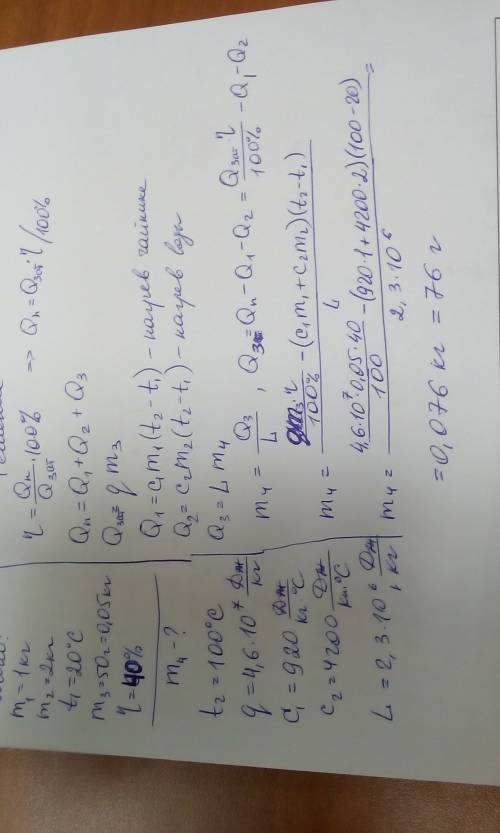 m₁ = 1 кг
m₂ = 2 кг
t₁ = 20°C
m₃ = 50 г = 0,05 кг
η = 40%
m₄ - ?
t₂ = 100°C
q = 4,6·10⁷ Дж/кг
c₁ = 920 Дж/кг·°C
c₂ = 4200 Дж/кг·°C
L = 2,3·10⁶ Дж/кг
η = Qп/Qзат · 100% => Qп = Qзат·η/100%
Qп = Q₁ + Q₂ + Q₃
Qзат = q m₃
Q₁ = c₁m₁(t₂-t₁) – нагрев чайника
Q₂ = c₂m₂(t₂-t₁) – нагрев воды
Q₃ = L m₄
m₄ = Q₃/L , Q₃ = Qп - Q₁ - Q₂ = Qзат·η/100% - Q₁ - Q₂
m₄ = (qm₃·η/100% - (c₁m₁ + c₂m₂)(t₂-t₁))/L
m₄ = (4,6·10⁷·0,05·40/100 - (920·1 + 4200·2)(100-20))/2,3·10⁶ =
= 0,076 кг = 76 г